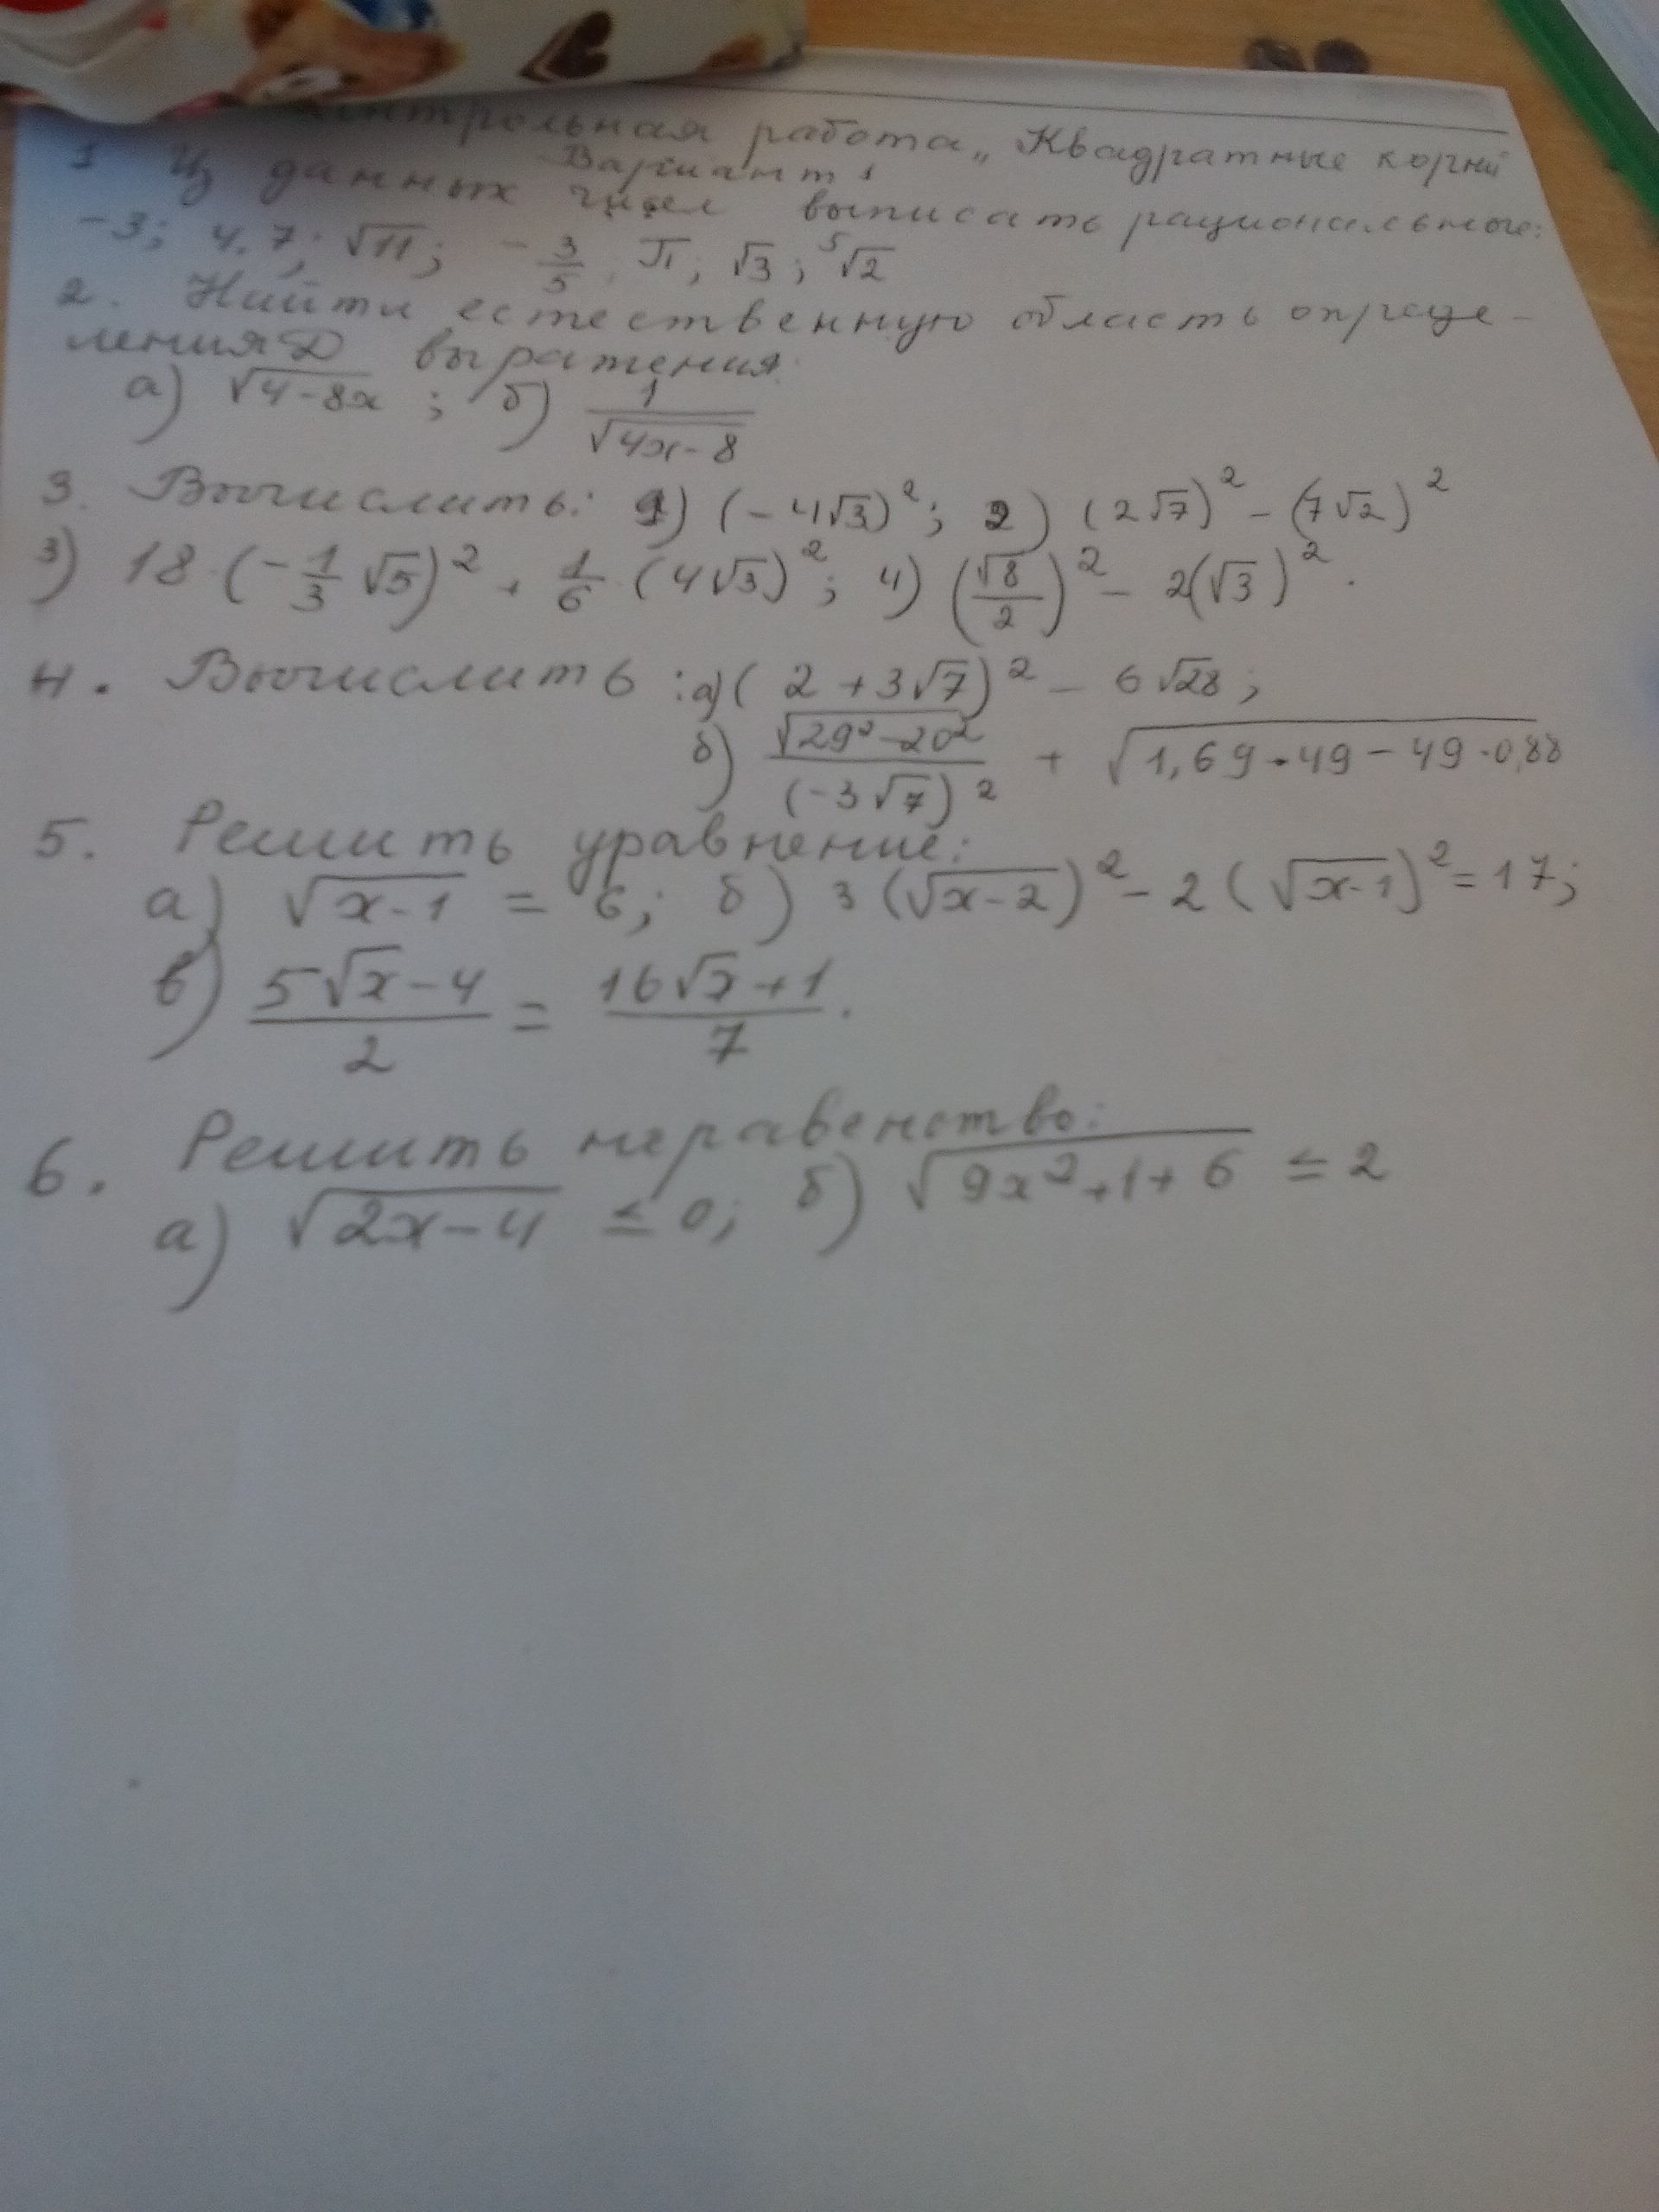 контрольная работа „Квадратные корни
Вариант 1
1 Из данных чисел выписать рациональные:
-3; 4,7; √11; -3/5, π; √3; ⁵√2
2. Найти естественную область опреде-
ления D выражения:
а) √(4-8x) ; б) 1/√(4x-8)
3. Вычислить: 1) (-4√3)²; 2) (2√7)² - (7√2)²
3) 18·(-1/3 √5)² + 1/6·(4√3)²; 4) (√8/2)² - 2(√3)².
4. Вычислить :а)(2+3√7)² - 6√28;
б) √(29²-20²)/(-3√7)² + √(1,69·49-49·0,88)
5. Решить уравнение:
а) √(x-1) = 6; б) 3(√(x-2))² - 2(√(x-1))² = 17;
в) (5√x-4)/2 = (16√x+1)/7.
6. Решить неравенство:
а) √(2x-4) ≤ 0; б) √(9x²+1+6) ≤ 2